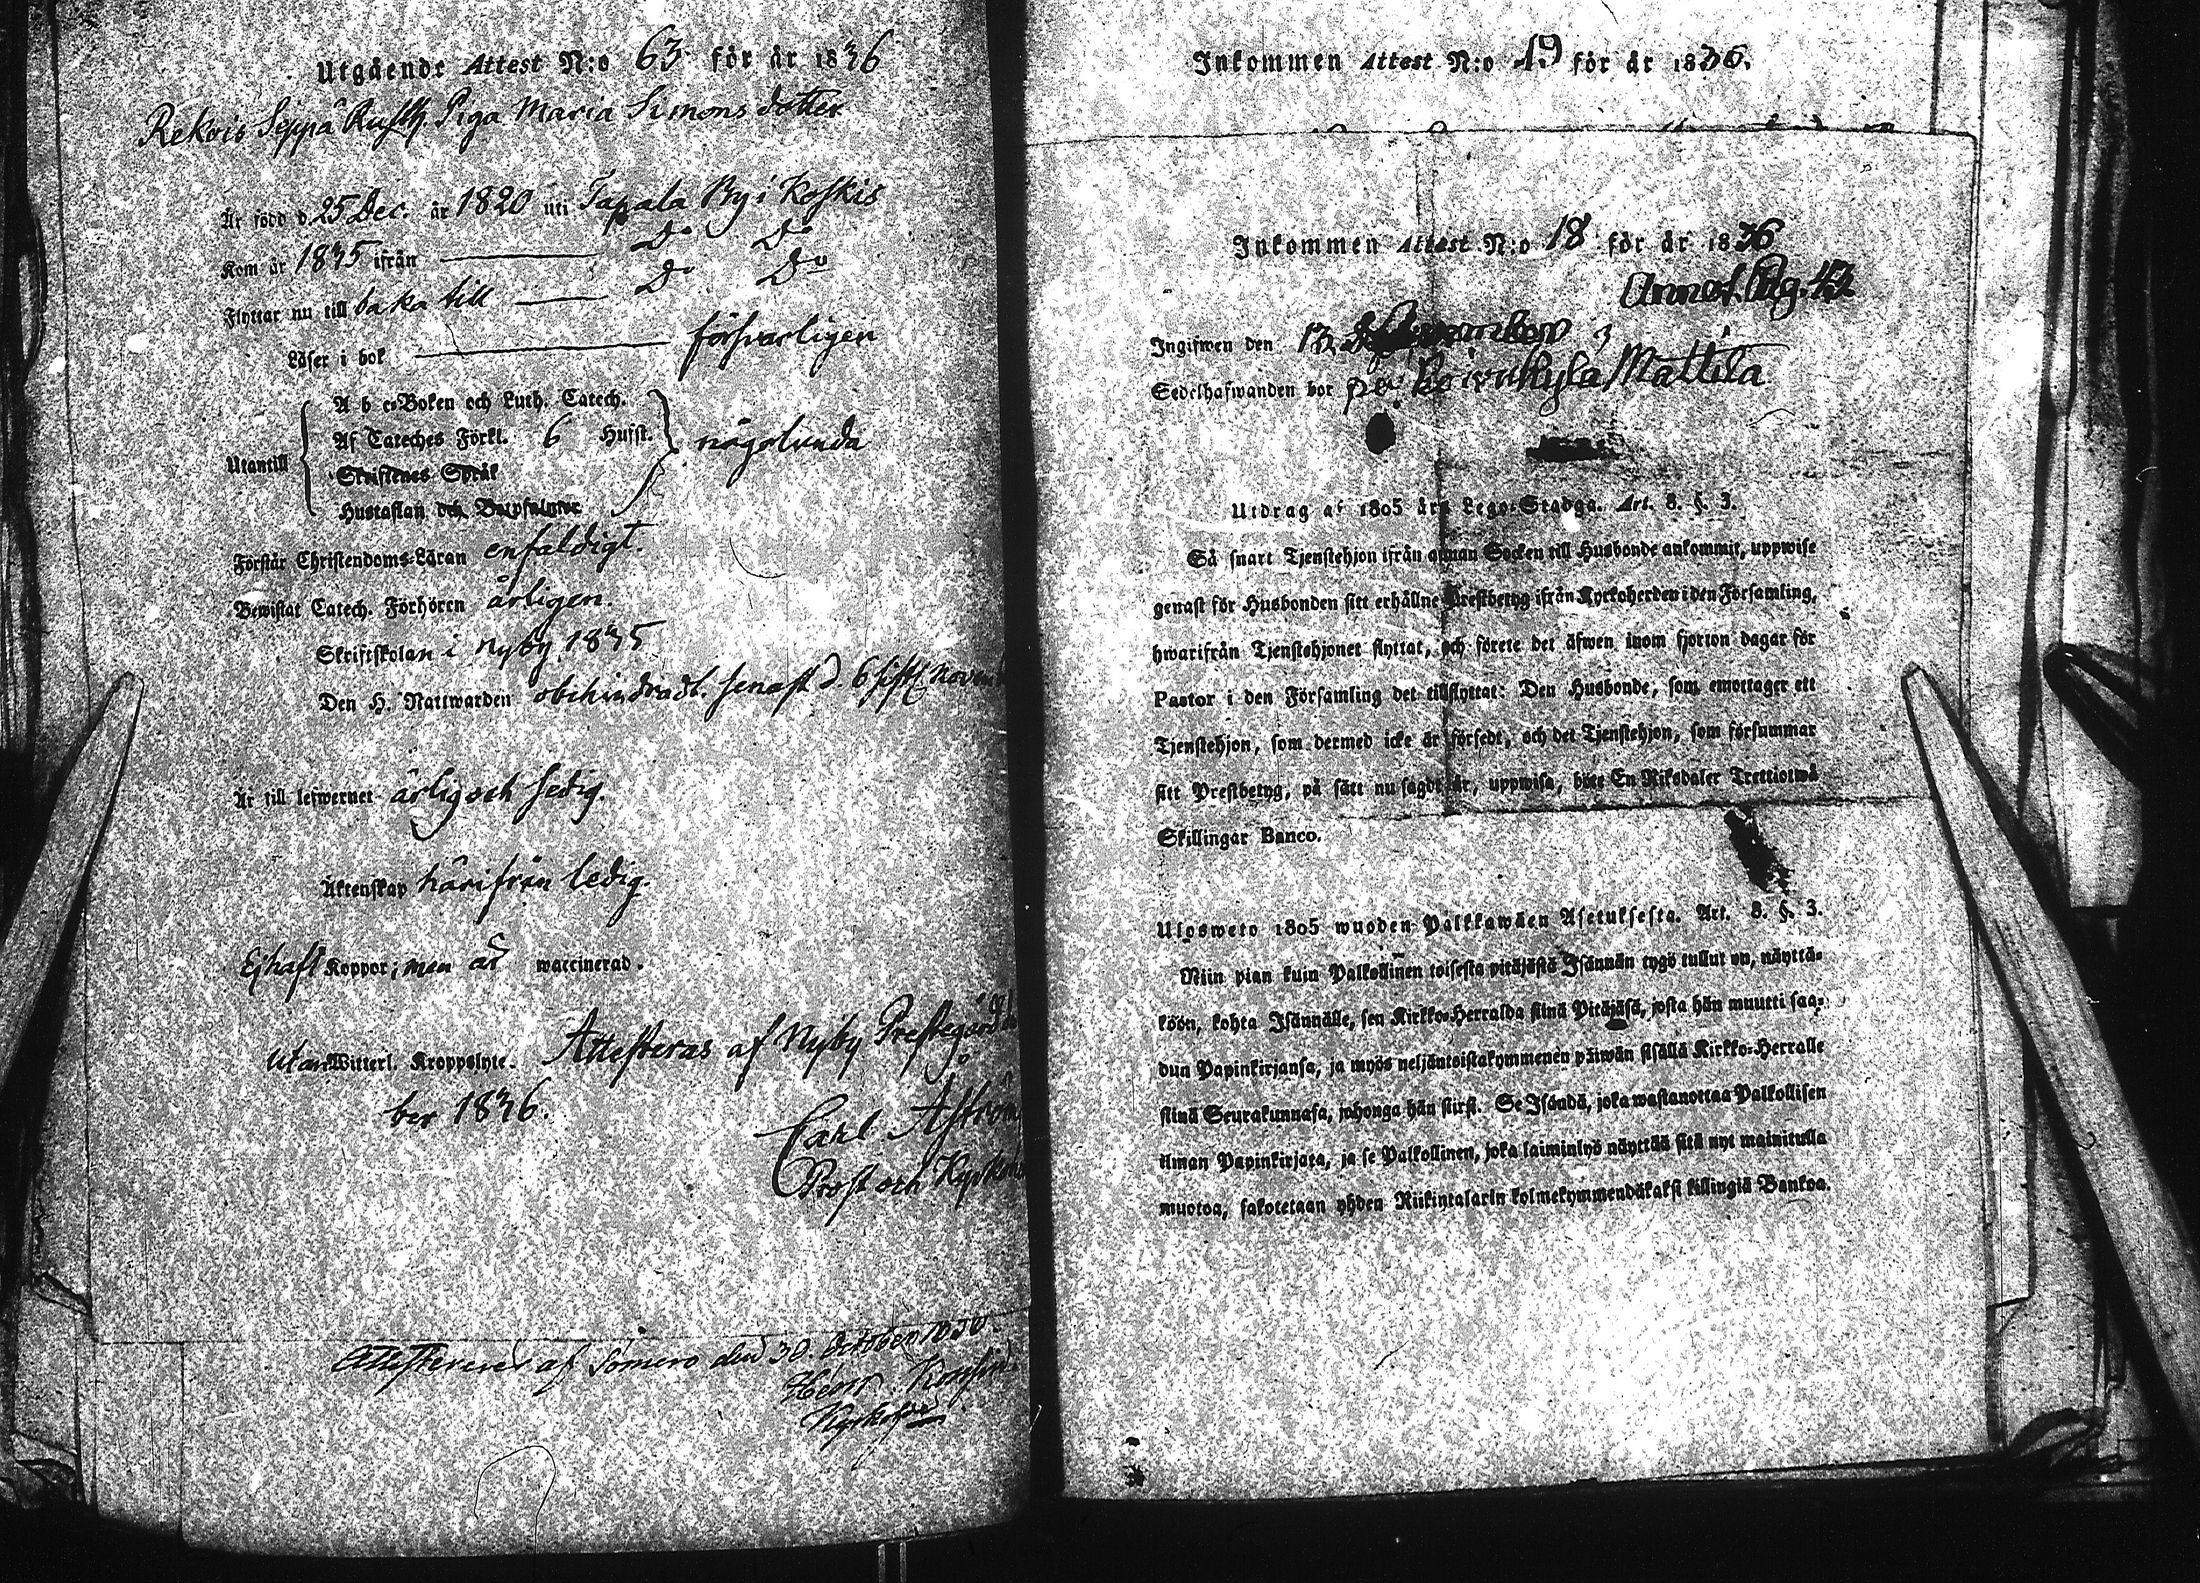 Utgående Attest N:o 63 för år 1836
Rekois Seppä Rusth. Piga Maria Simons dotter
Är född d. 25 Dec. år 1820 uti Tapala By i Koskis
Kom år 1835 ifrån — Do Do
Flyttar nu till baka till — Do Do
Läser i bok — försvarligen
A b c-Boken och Luth. Catech.
Af Cateches Förkl. 6 Hufst.
Utantill någolunda
Skriftenes Språk
Hustaflan och Botpsalmer
Förstår Christendoms-Läran enfaldigt.
Bewistat Catech. Förhören årligen.
Skriftskolan i Nyby 1835
Den H. Nattwarden obehindradt. senast d. 6 sistl. Novem
Är till lefwernet ärlig och sedig.
Äktenskap härifrån ledig.
Ej haft Koppor; men är waccinerad.
utan Witterl. Kroppslyte. Attesteras af Nyby Prestegård
ber 1836.
Carl Aström
Prost och Kyrkoh
Attesterer af Somero den 30 October
Kyrkohde
Inkommen Attest N:o 19 för år 1836.
Inkommen Attest N:o 18 för år 1836
Annot. Pag. 42
Ingifwen den 13
Sedelhafwanden bor på Koivukylä Mattila
Utdrag af 1805 års Lego-Stadga. Art. 8. §. 3.
Så snart Tjenstehjon ifrån annan Socken till Husbonde ankommit, uppwise
genast för Husbonden sitt erhållne Prestbetyg ifrån Kyrkoherden i den Församling,
hwarifrån Tjenstehjonet flyttat, och förete det äfwen inom fjorton dagar för
Pastor i den Församling det tillflyttat: Den Husbonde, som emottager ett
Tjenstehjon, som dermed icke är försedt, och det Tjenstehjon, som försummar
sitt Prestbetyg, på sätt nu sagdt är, uppwisa, böte En Riksdaler Trettiotwå
Skillingar Banco.
Ulosweto 1805 wuoden Palkkawäen Asetuksesta. Art. 8. §. 3.
Niin pian kuin Palkollinen toisesta pitäjästä Isännän tygö tullut on, näyttä-
köön, kohta Isännälle, sen Kirkko-Herralda siinä Pitäjäsä, josta hän muutti saa-
dun Papinkirjansa, ja myös neljäntoistakymmenen päiwän sisällä Kirkko-Herralle
siinä Seurakunnasa, johonga hän siirsi. Se Isändä, joka wastanottaa Palkollisen
ilman Papinkirjata, ja se Palkollinen, joka laiminlyö näyttää sitä nyt mainitulla
muotoa, sakotetaan yhden Riikintalarin kolmekymmendäkaksi killingiä Bankoa.